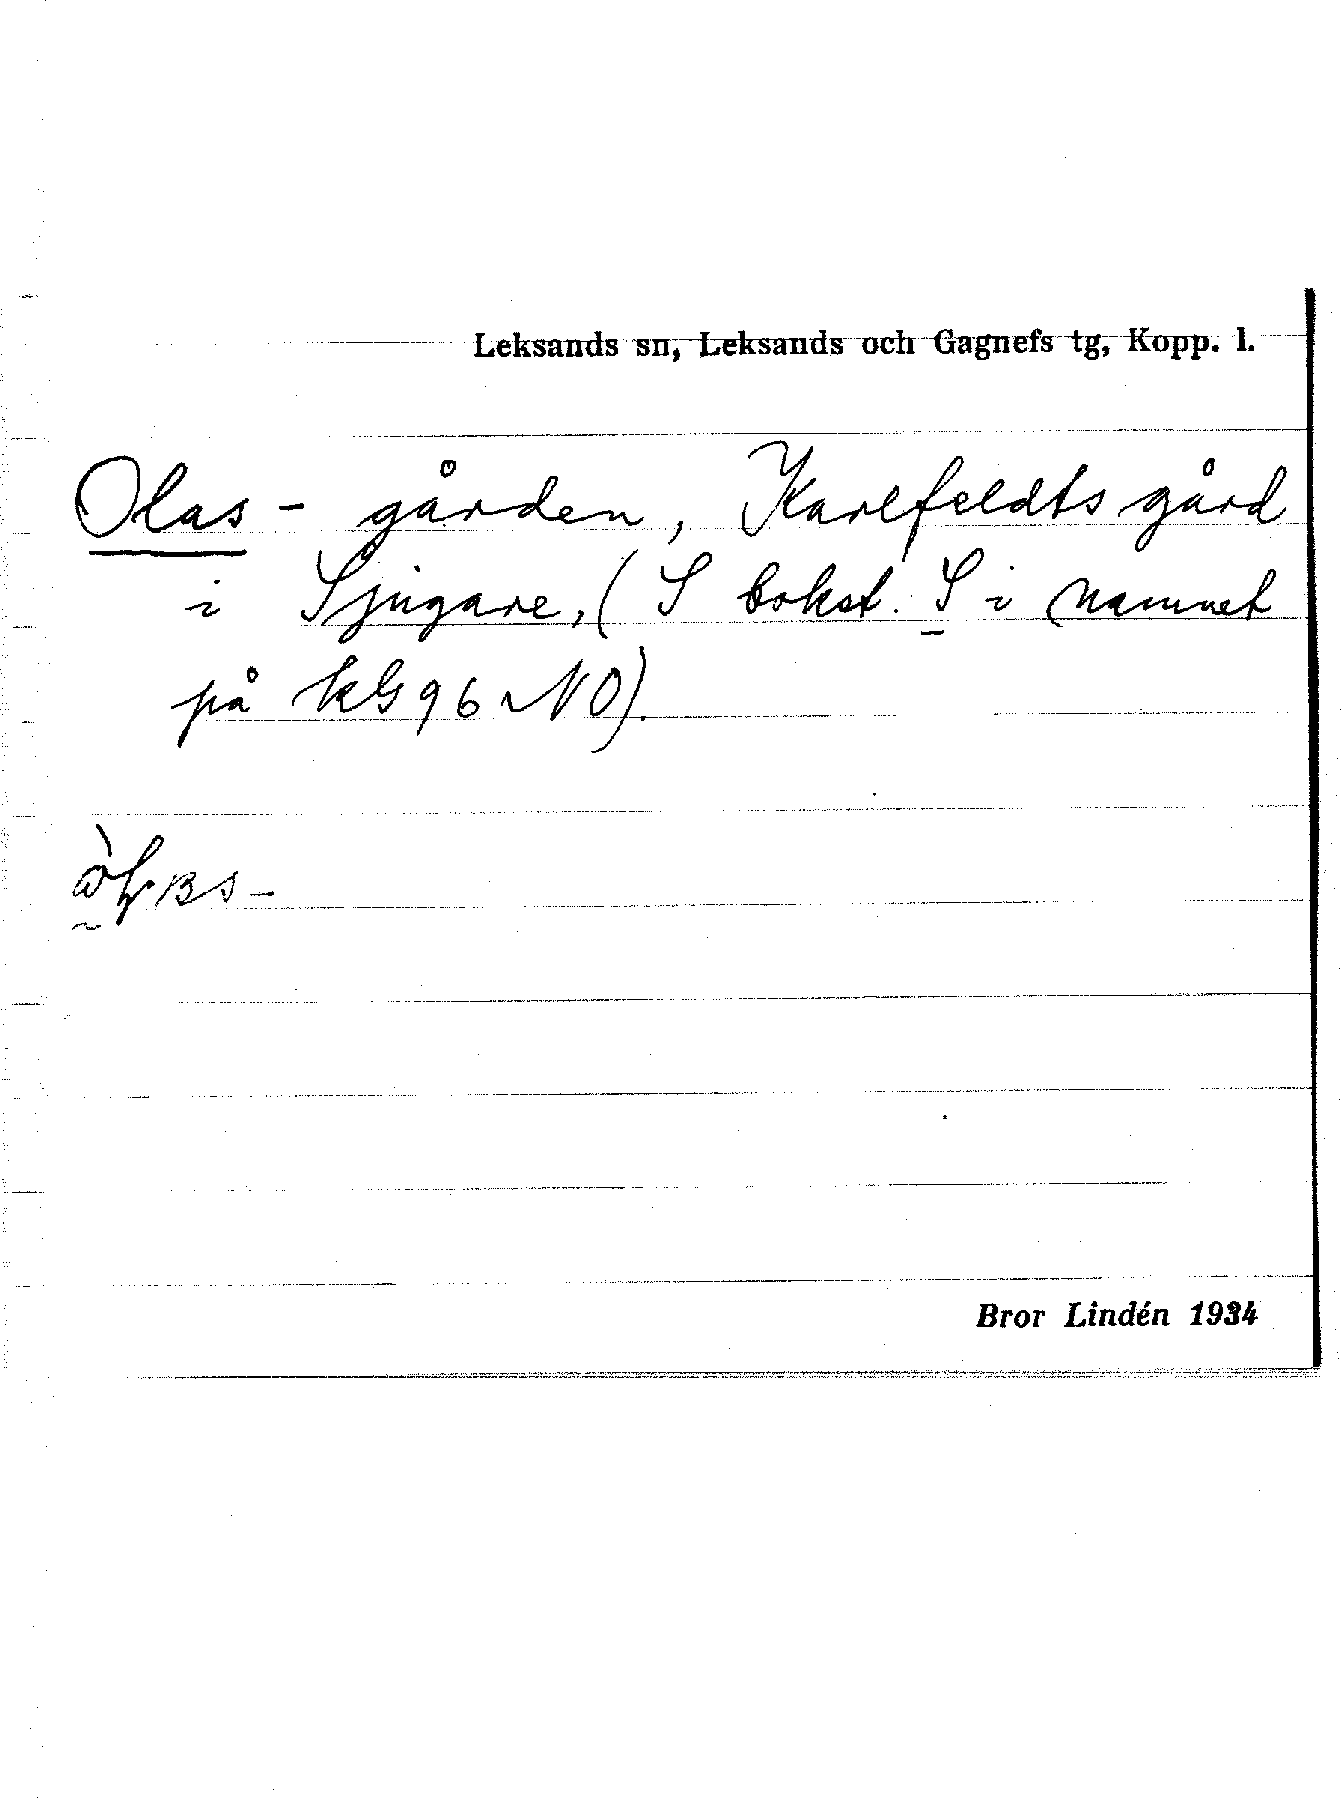 Leksands sn, Leksands och Gagnefs tg, Kopp. l.
Olas - gården, Karlfeldts gård
i Sjugare, (S bokst. S i namnet
på kG 96 NO).
Bror Lindén 1934